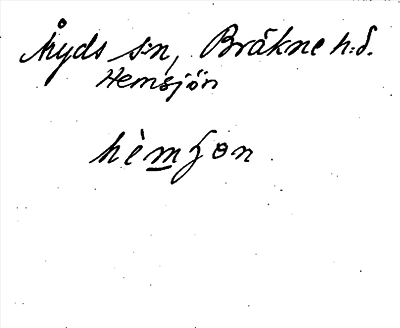 Åryds s:n, Bräkne h:d.
Hemsjön
hèmʃøn